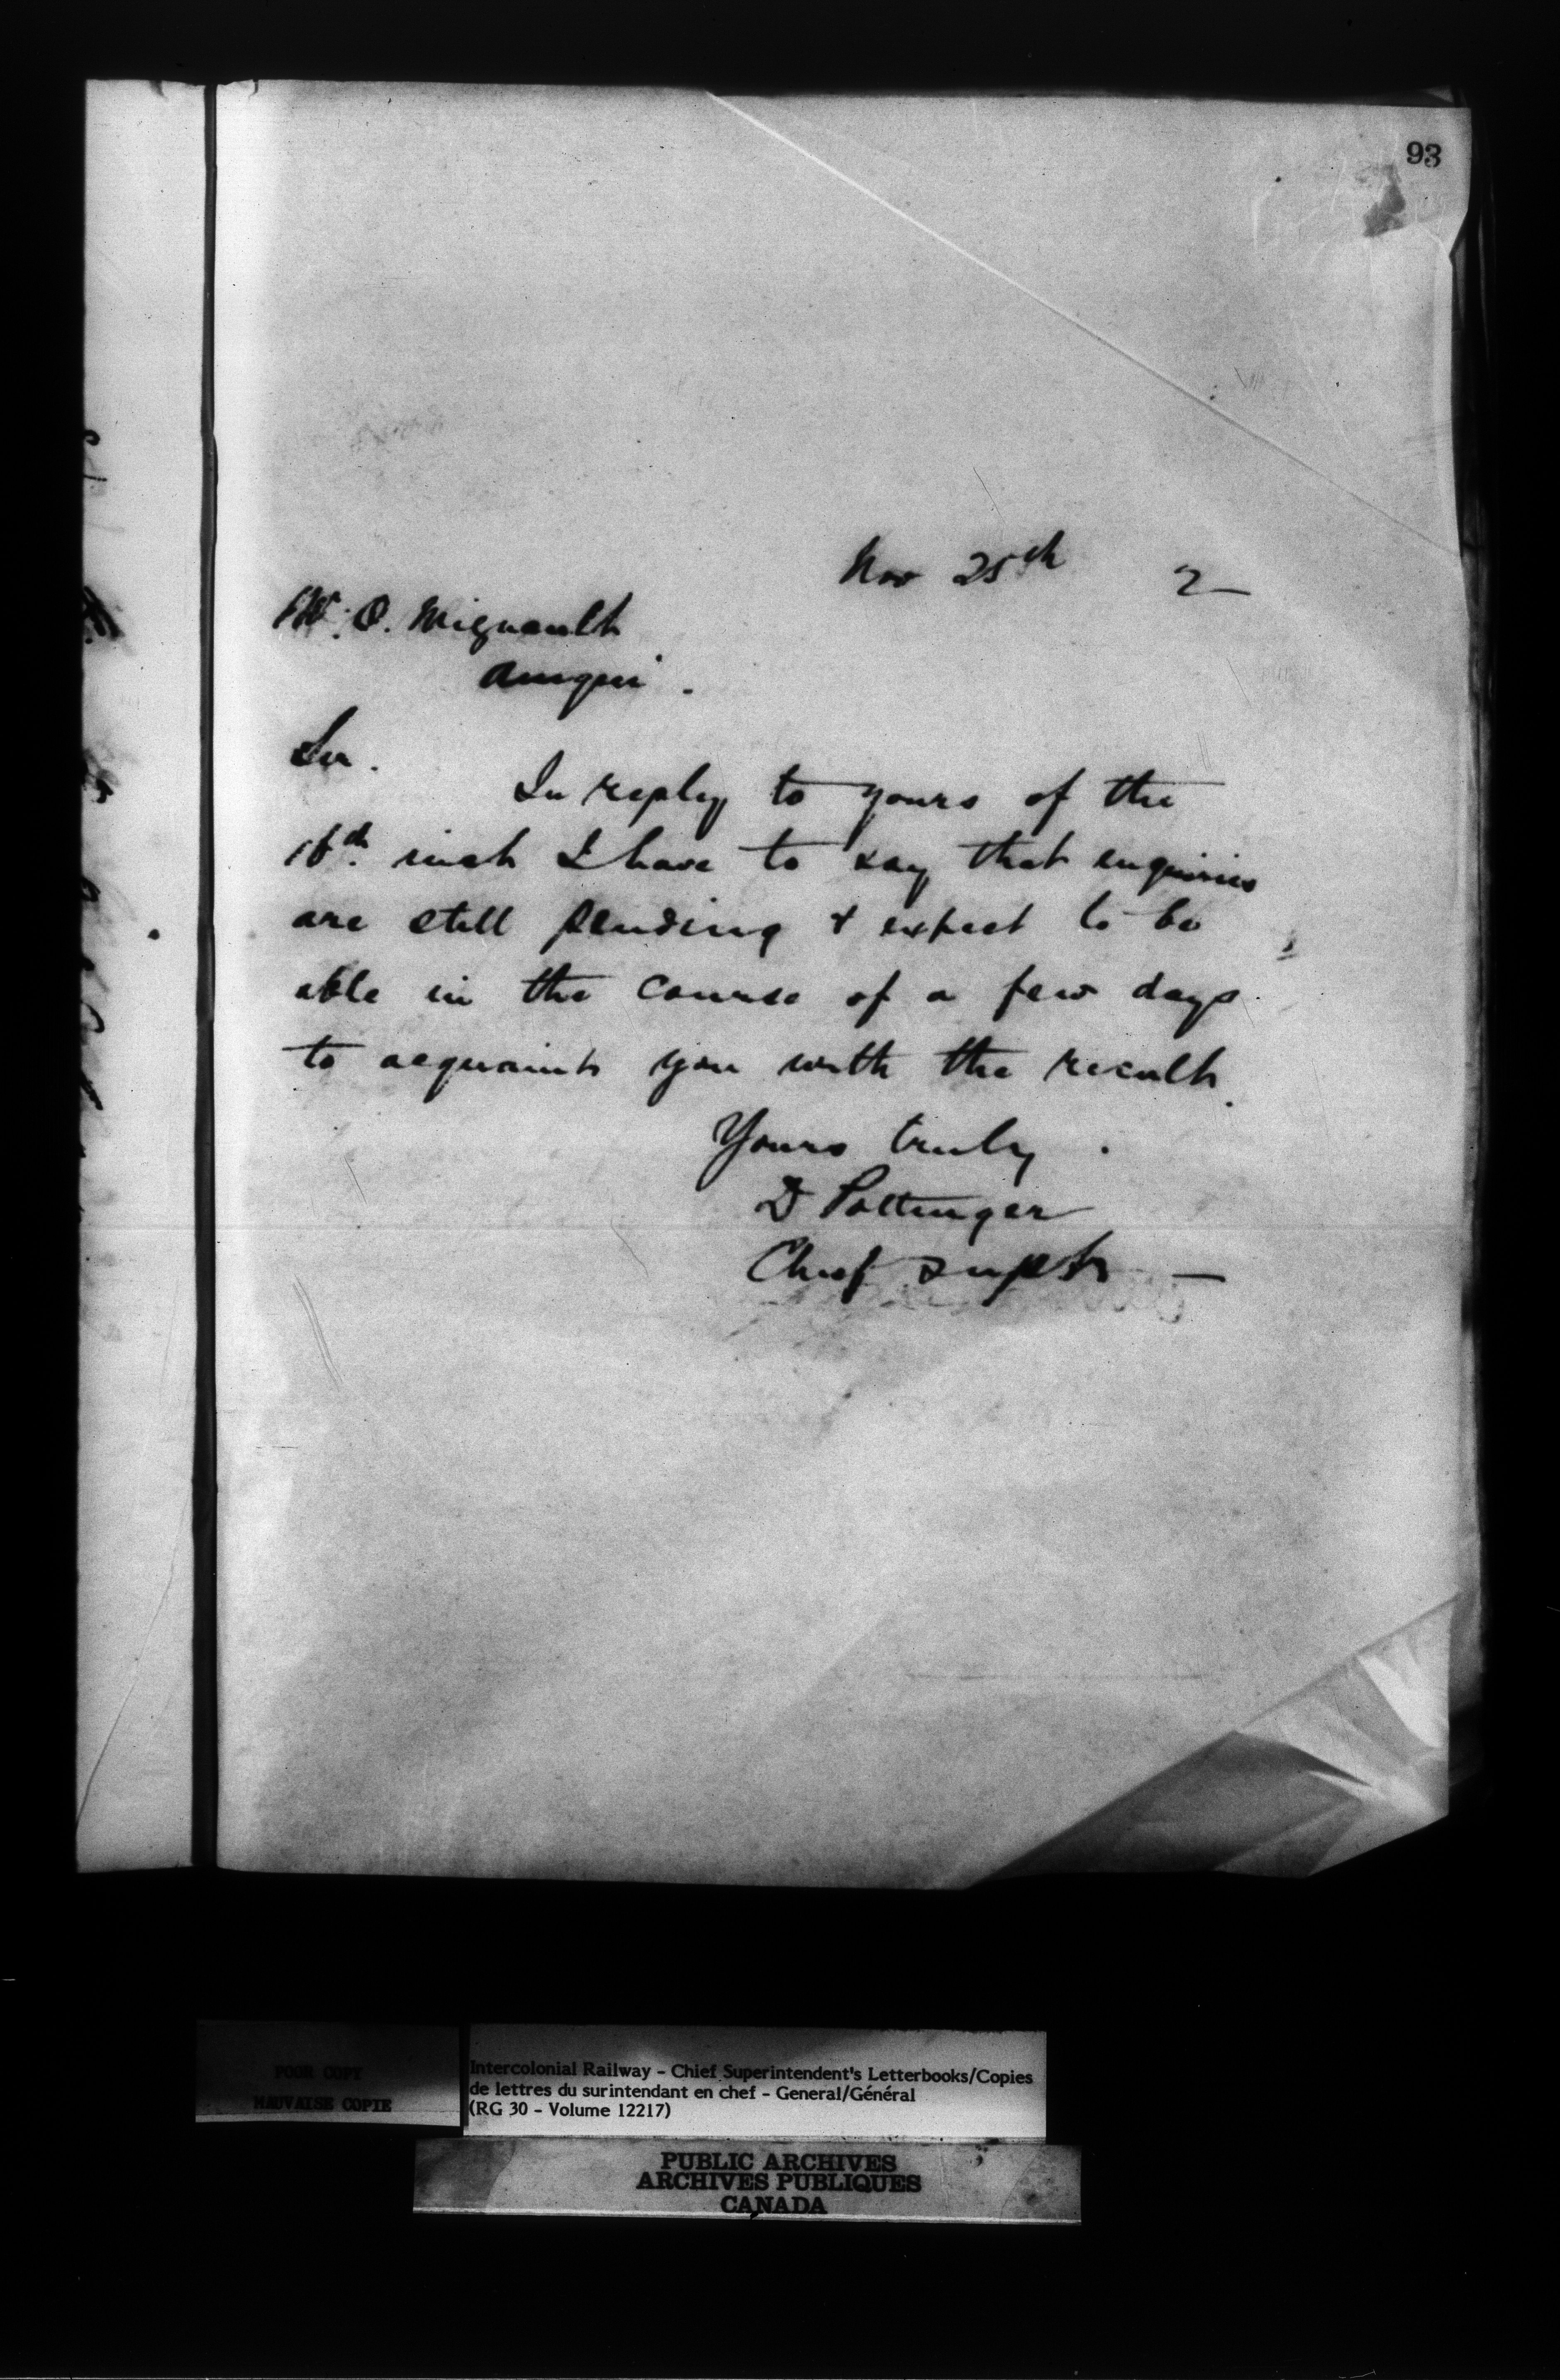 93
Nov 25th 2
W. O. Mignault
Amqui.
Sir.
In reply to yours of the
16th inst I have to say that enquiries
are still pending & expect to be
able in the course of a few days
to acquaint you with the result.
Yours truly.
D Pottinger
Chief Supt
POOR COPY
MAUVAISE COPIE
Intercolonial Railway - Chief Superintendent's Letterbooks/Copies
de lettres du surintendant en chef - General/Général
(RG 30 - Volume 12217)
PUBLIC ARCHIVES
ARCHIVES PUBLIQUES
CANADA